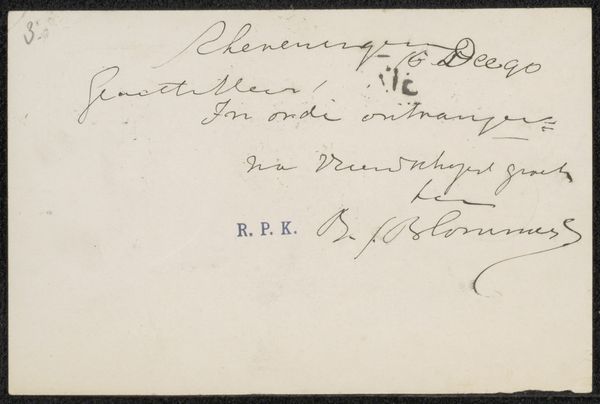 3.
Scheveningen
16 Dec 90
Geachte Heer!
In orde ontvangen
na vriendschapp groeten
R. P. K. B. J. Blommers